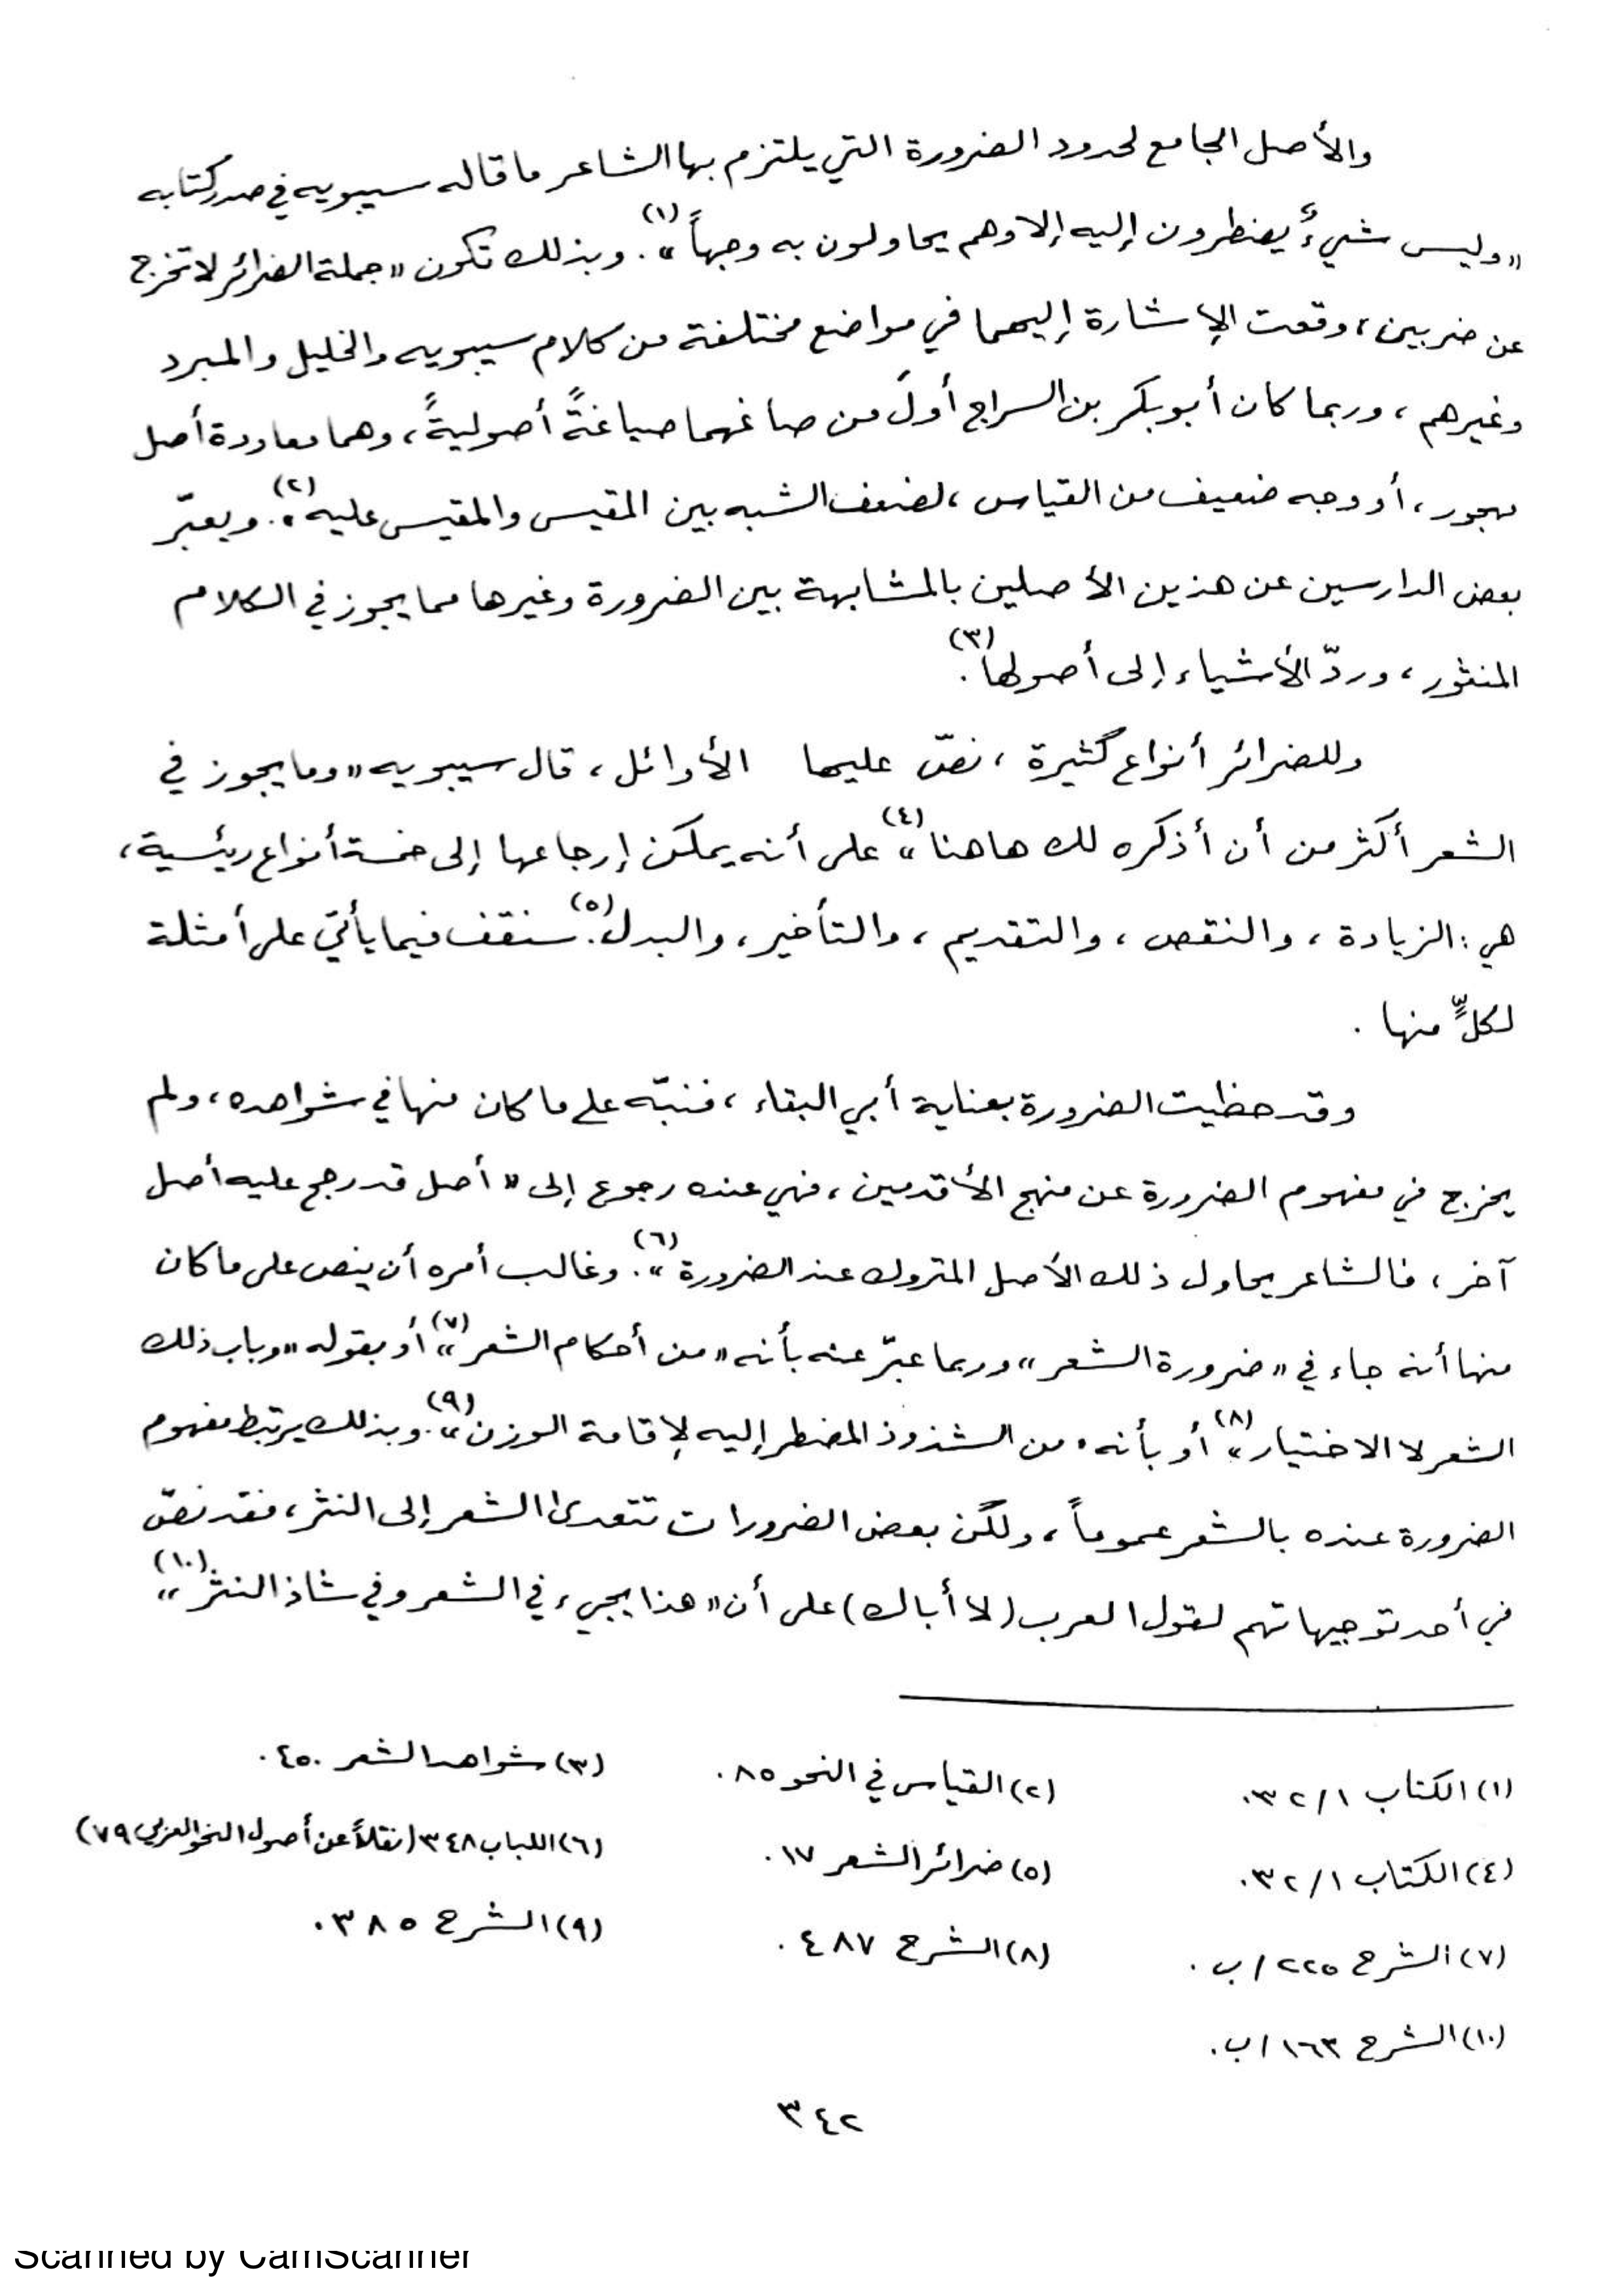 والأصل الجامع لحدود الضرورة التي يلتزم بها الشاعر ما قاله سيبويه في صدر كتابه
«وليس شيءٌ يضطرون إليه إلا وهم يحاولون به وجهاً»(١). وبذلك تكون «جملة الضرائر لا تخرج
عن ضربين، وقعت الإشارة إليهما في مواضع مختلفة من كلام سيبويه والخليل والمبرد
وغيرهم، وربما كان أبو بكر بن السراج أولَ من صاغهما صياغةً أصوليةً، وهما معاودة أصل
مهجور، أو وجه ضعيف من القياس، لضعف الشبه بين المقيس والمقيس عليه»(٢). ويعبّر
بعض الدارسين عن هذين الأصلين بالمشابهة بين الضرورة وغيرها مما يجوز في الكلام
المنثور، وردّ الأشياء إلى أصولها(٣).
وللضرائر أنواع كثيرة، نصّ عليها الأوائل، قال سيبويه «وما يجوز في
الشعر أكثر من أن أذكره لك هاهنا»(٤) على أنه يمكن إرجاعها إلى خمسة أنواع رئيسية،
هي: الزيادة، والنقص، والتقديم، والتأخير، والبدل(٥). سنقف فيما يأتي على أمثلة
لكلٍّ منها.
وقد حظيت الضرورة بعناية أبي البقاء، فنبّه على ما كان منها في شواهده، ولم
يخرج في مفهوم الضرورة عن منهج الأقدمين، فهي عنده رجوع إلى «أصل قد رجح عليه أصل
آخر، فالشاعر يحاول ذلك الأصل المتروك عند الضرورة»(٦). وغالب أمره أن ينص على ما كان
منها أنه جاء في «ضرورة الشعر» وربما عبّر عنه بأنه «من أحكام الشعر»(٧) أو بقوله «وباب ذلك
الشعر لا الاختيار»(٨) أو بأنه «من الشذوذ المضطر إليه لإقامة الوزن»(٩). وبذلك يرتبط مفهوم
الضرورة عنده بالشعر عموماً، ولكن بعض الضرورات تتعدى الشعر إلى النثر، فقد نصّ
في أحد توجيهاتهم لقول العرب (لا أباك) على أن «هذا يجيء في الشعر وفي شاذ النثر»(١٠)
(١) الكتاب ٣٢/١. (٢) القياس في النحو ٨٥. (٣) شواهد الشعر ٤٥٠.
(٤) الكتاب ٣٢/١. (٥) ضرائر الشعر ١٧. (٦) اللباب ٣٤٨ (نقلاً عن أصول النحو العربي ٧٩)
(٧) الشرح ٢٢٥/ب. (٨) الشرح ٤٨٧. (٩) الشرح ٣٨٥.
(١٠) الشرح ١٦٣/ب.
٣٤٢
Scanned by CamScanner